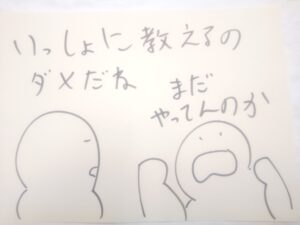 いっしょに教えるの
ダメだね
まだ
やってんのか